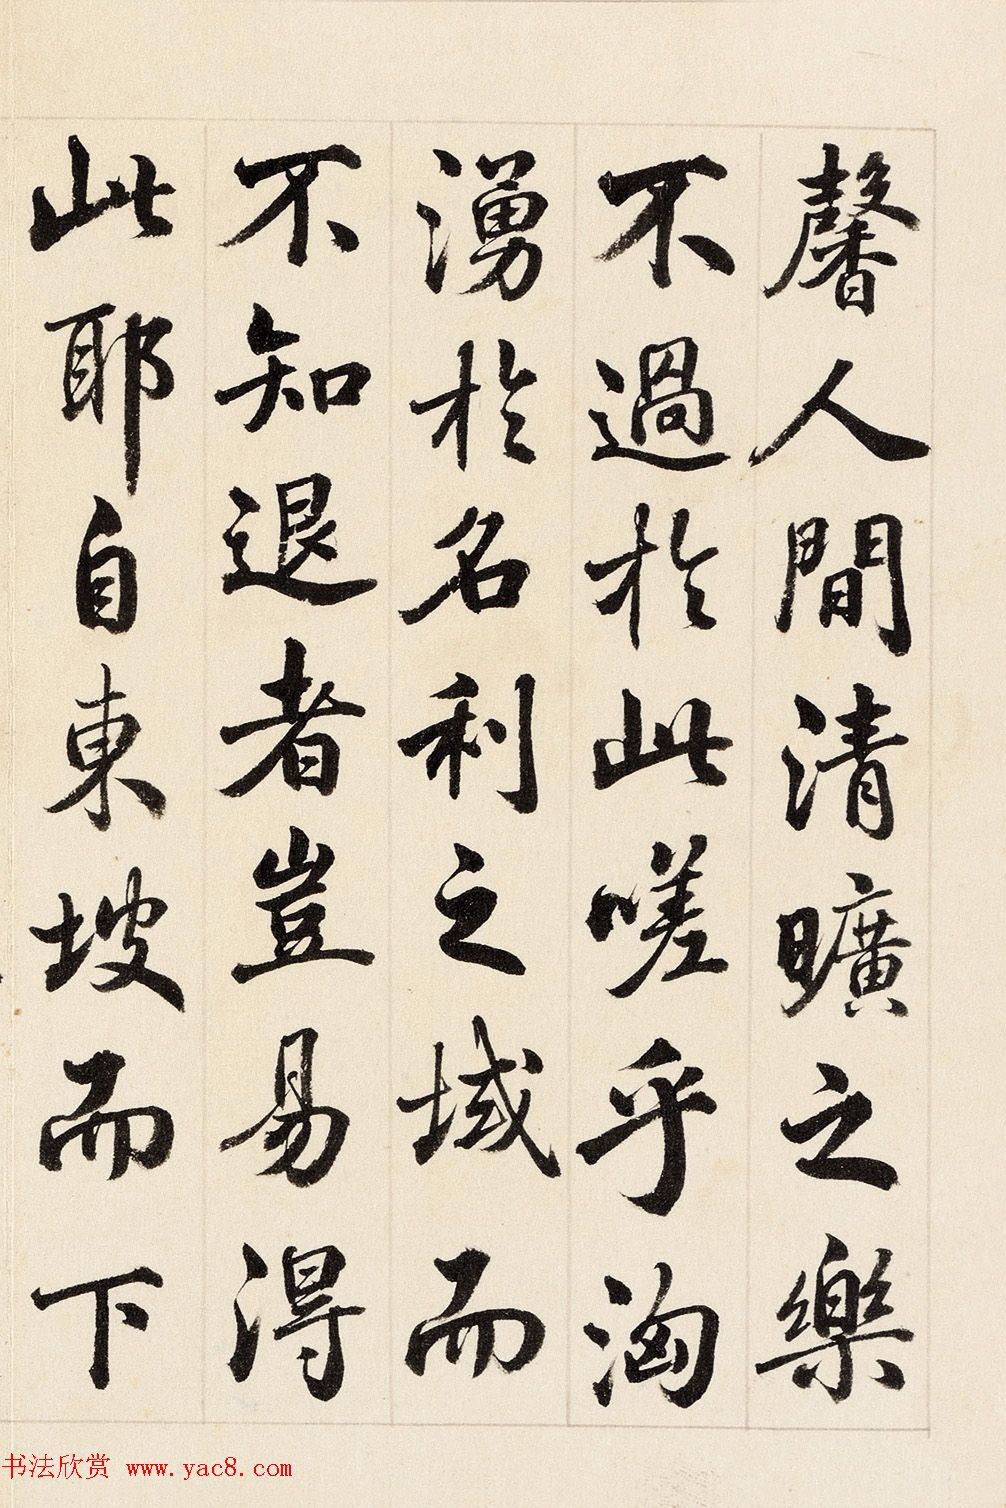 馨人間清曠之樂
不過於此嗟乎洶
湧於名利之域而
不知退者豈易得
此耶自東坡而下
书法欣赏 www.yac8.com